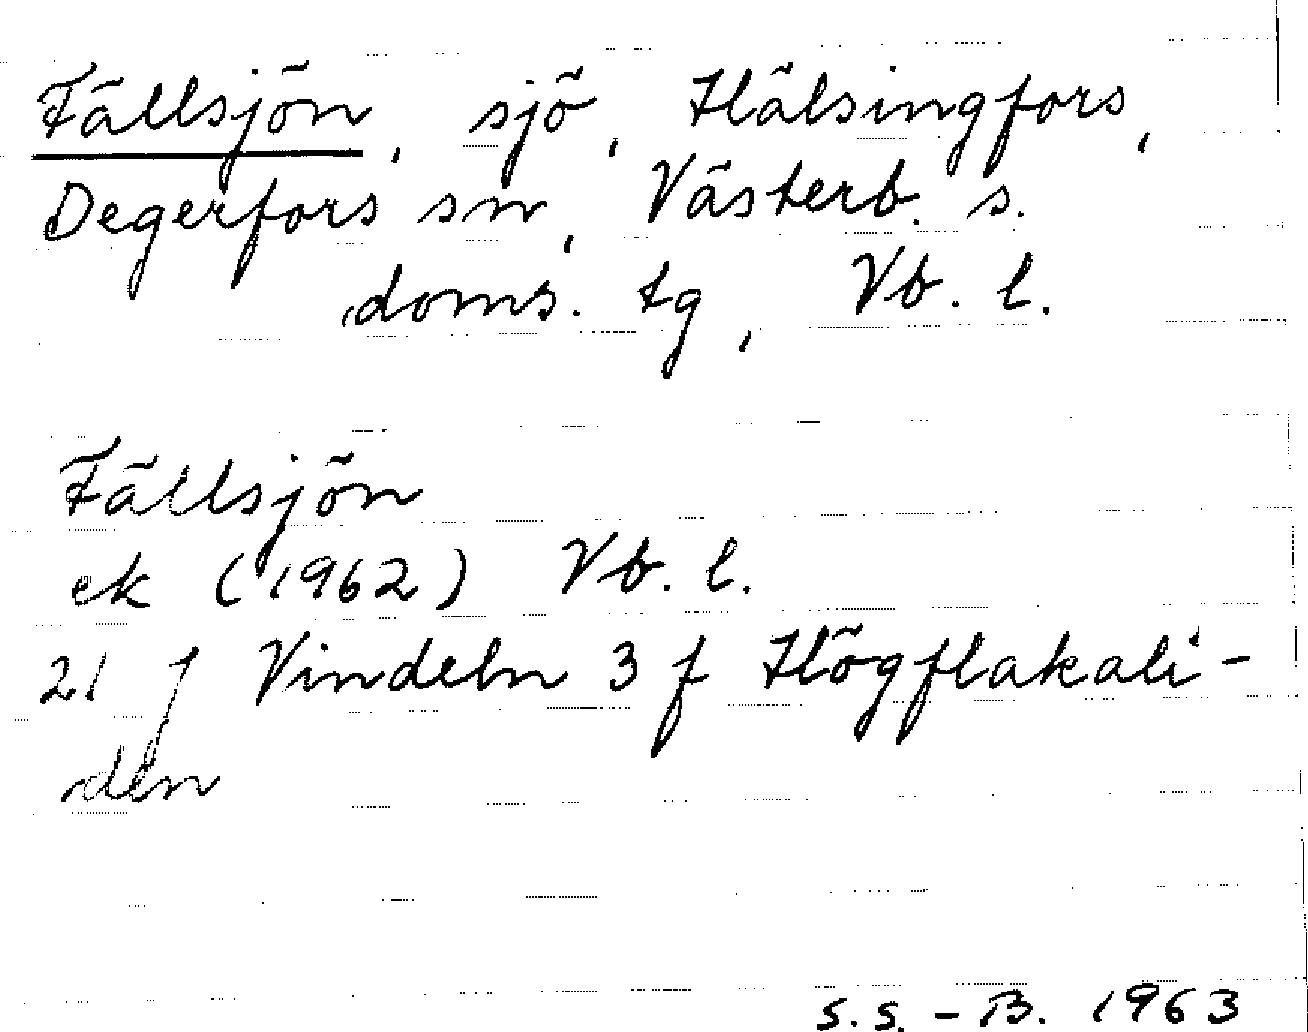 Fällsjön, sjö, Hälsingfors,
Degerfors sn, Västerb. s.
doms. tg, Vb. l.
Fällsjön
ek (1962) Vb. l.
21 J Vindeln 3 f Högflakali-
den
S.S.-B. 1963